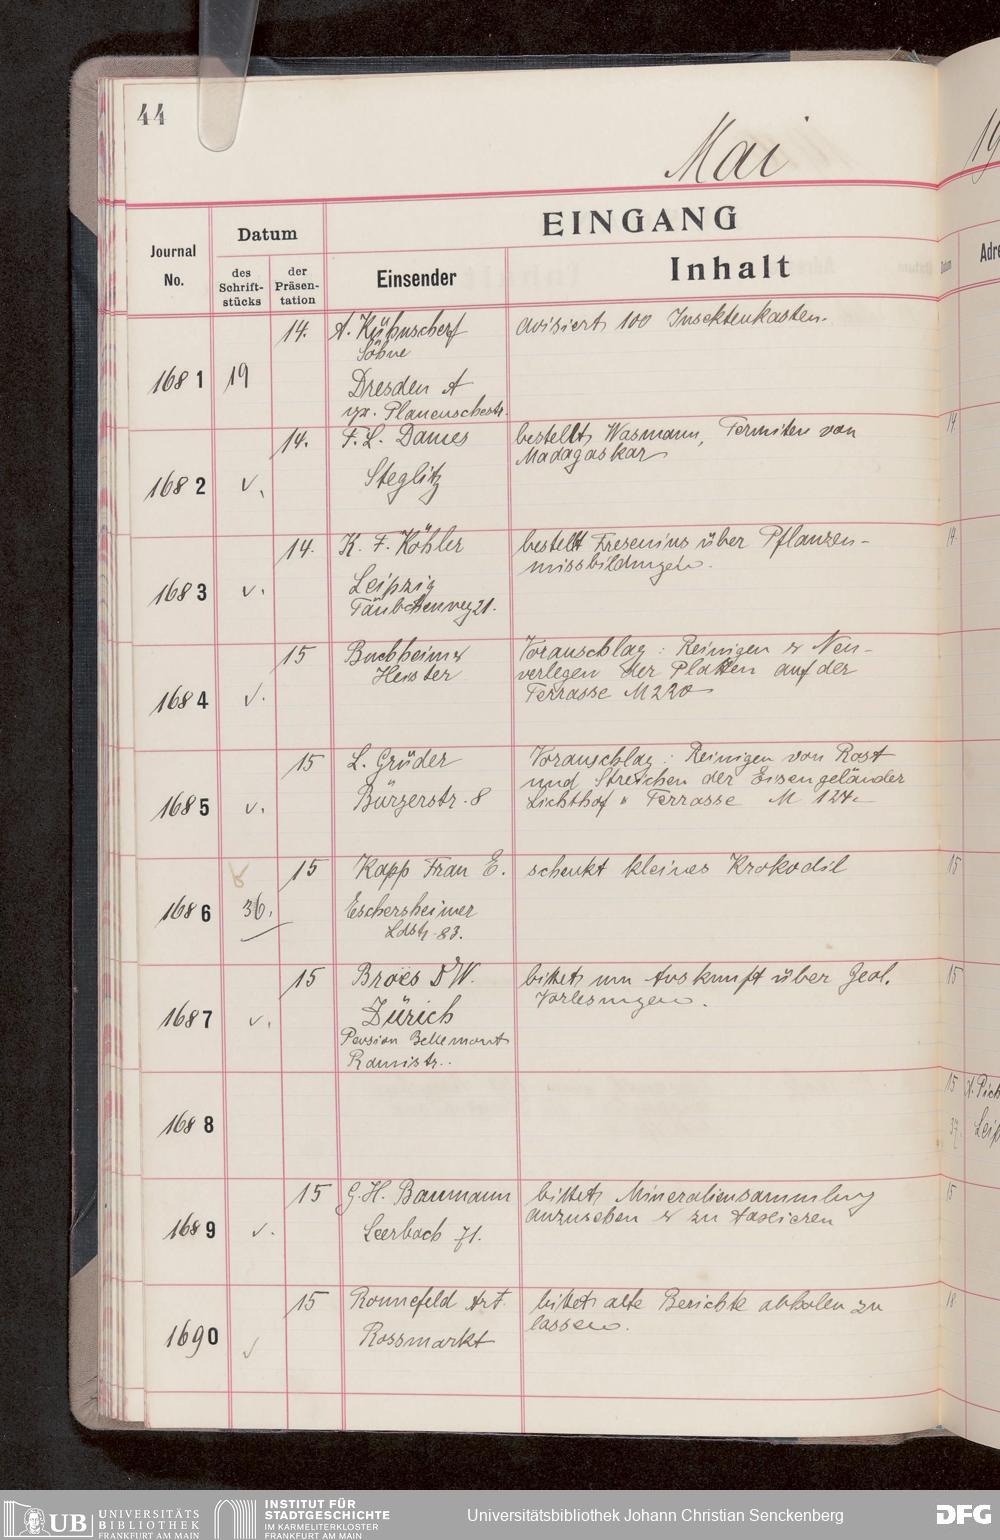 44
Mai
19
EINGANG
Journal
No.
Datum
des
Schrift-
stücks
der
Präsen-
tation
Einsender
Inhalt
Datum
Adre
1681
19
14.
A. Kühnscherf
Söhne
Dresden A
gr. Plauenschestr.
avisiert 100 Insektenkasten.
1682
v.
14.
F. L. Dames
Steglitz
bestellt Wasmann, Termiten von
Madagaskar
14
1683
v.
14.
K. F. Köhler
Leipzig
Täubchenweg 21.
bestellt Fresenius über Pflanzen-
missbildungen.
14
1684
v.
15
Buchheim &
Heister
Voranschlag: Reinigen & Neu-
verlegen der Platten auf der
Terrasse M 220
1685
v.
15
L. Grüder
Bürgerstr. 8
Voranschlag: Reinigen von Rost
und Streichen der Eisengeländer
Lichthof u Terrasse M 124.-
1686
36.
15
Kapp Frau E.
Eschersheimer
Ldstr. 83.
schenkt kleines Krokodil
15
1687
v.
15
Broës Dr W.
Zürich
Pension Bellemont
Rämistr..
bittet um Auskunft über Geol.
Vorlesungen.
15
1688
15
A. Pich
37.
Leip
1689
v.
15
G. H. Baumann
Leerbach 71.
bittet Mineraliensammlung
anzusehen & zu taxieren
15
1690
v
15
Ronnefeld Art.
Rossmarkt
bittet alte Berichte abholen zu
lassen.
18
UB UNIVERSITÄTS
BIBLIOTHEK
FRANKFURT AM MAIN
INSTITUT FÜR
STADTGESCHICHTE
IM KARMELITERKLOSTER
FRANKFURT AM MAIN
Universitätsbibliothek Johann Christian Senckenberg
DFG